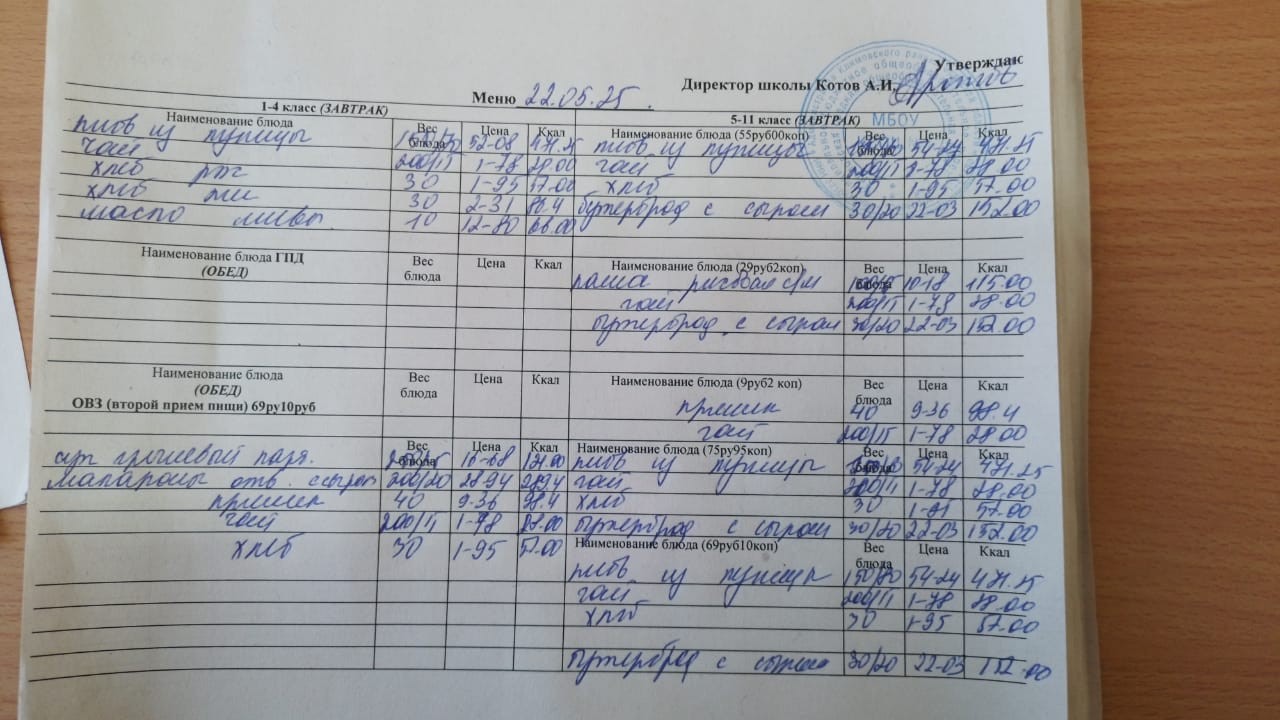 Утверждаю
Директор школы Котов А.И.
Меню 22.05.25.
1-4 класс (ЗАВТРАК)
5-11 класс (ЗАВТРАК)
Наименование блюда Вес блюда Цена Ккал
Наименование блюда (55руб00коп) Вес блюда Цена Ккал
плов из курицы 52-08 471.25
плов из курицы 54-24 471.25
чай 200/15 1-78 28.00
чай 1-78 28.00
хлеб рж 30 1-95 57.00
хлеб 30 1-95 57.00
хлеб 30 2-31 80.4
бутерброд с сыром 30/20 22-03 152.00
масло слив. 10 12-80 66.00
Наименование блюда ГПД (ОБЕД) Вес блюда Цена Ккал
Наименование блюда (29руб2коп) Вес блюда Цена Ккал
каша рисовая 10-18 115.00
чай 200/15 1-78 28.00
бутерброд с сыром 30/20 22-03 152.00
Наименование блюда (ОБЕД) Вес блюда Цена Ккал
ОВЗ (второй прием пищи) 69ру10руб
Наименование блюда (9руб2 коп) Вес блюда Цена Ккал
пряник 40 9-36 98.4
чай 200/15 1-78 28.00
Вес блюда Цена Ккал
Наименование блюда (75ру95коп) Вес блюда Цена Ккал
суп
плов из курицы 54-24 471.25
макароны отв. с сыром 200/20 28-94 289.4
чай 1-78 28.00
пряник 40 9-36 98.4
хлеб 30 57.00
чай 200/11 1-78 28.00
бутерброд с сыром 30/20 22-03 152.00
хлеб 30 1-95 57.00
Наименование блюда (69руб10коп) Вес блюда Цена Ккал
плов из курицы 150/80 54-24 471.25
чай 200/11 1-78 28.00
хлеб 30 1-95 57.00
бутерброд с сыром 30/20 22-03 152.00
МБОУ